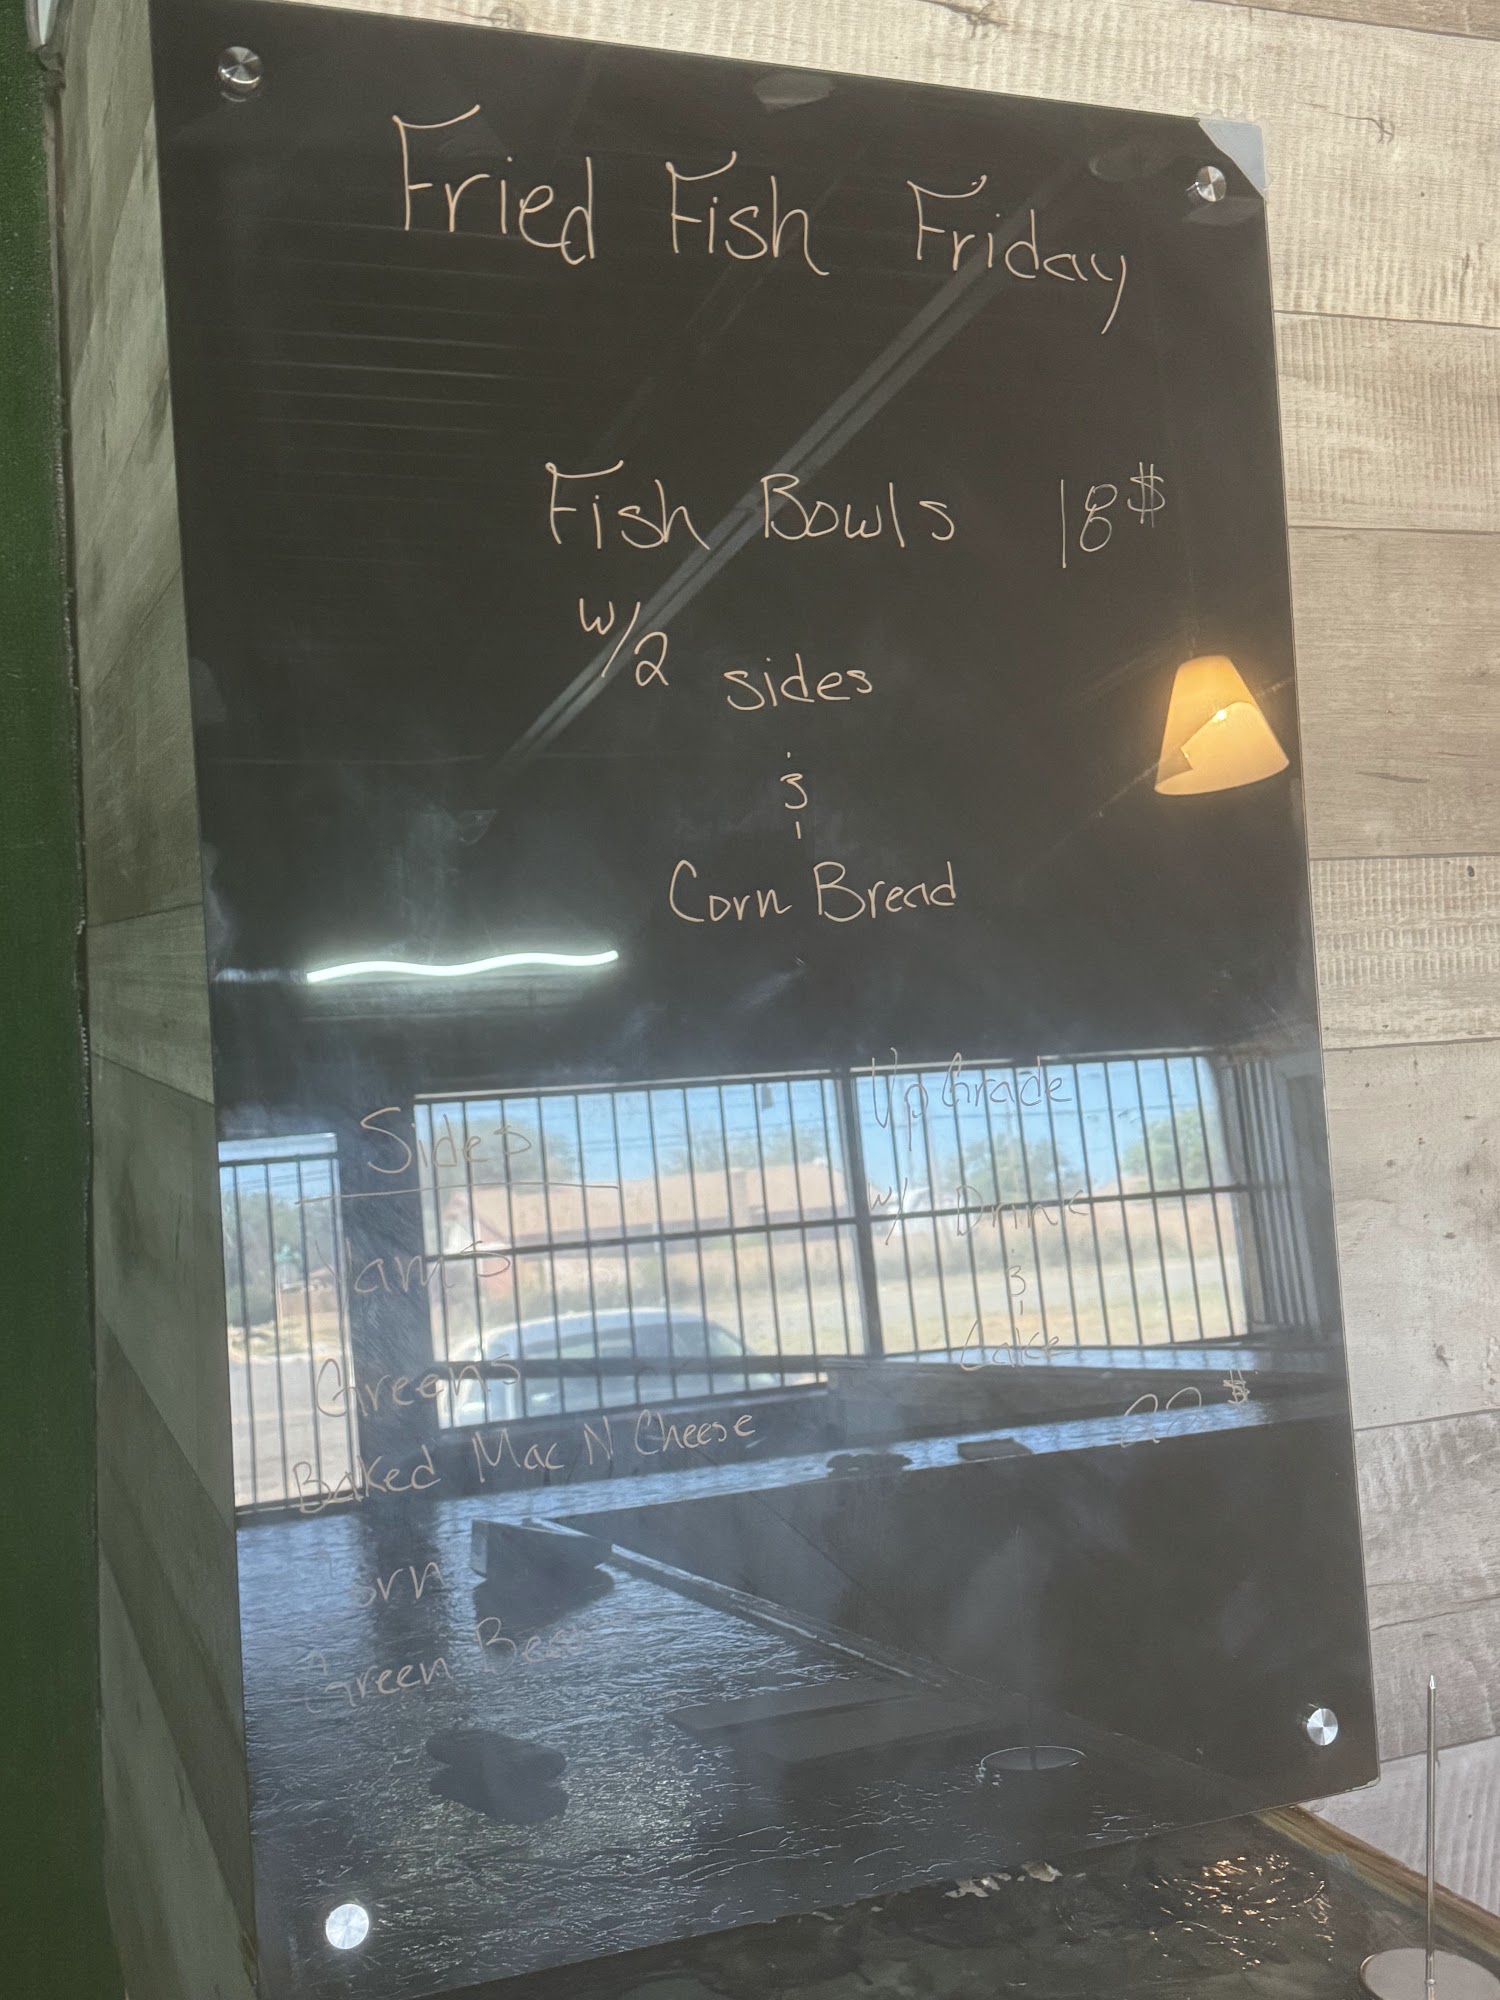 Fried Fish Friday
Fish Bowls 18$
w/2 sides
&
Corn Bread
Sides
Yams
Greens
Baked Mac N Cheese
Corn
Green
UpGrade
w/ Drink
&
Cake
22$